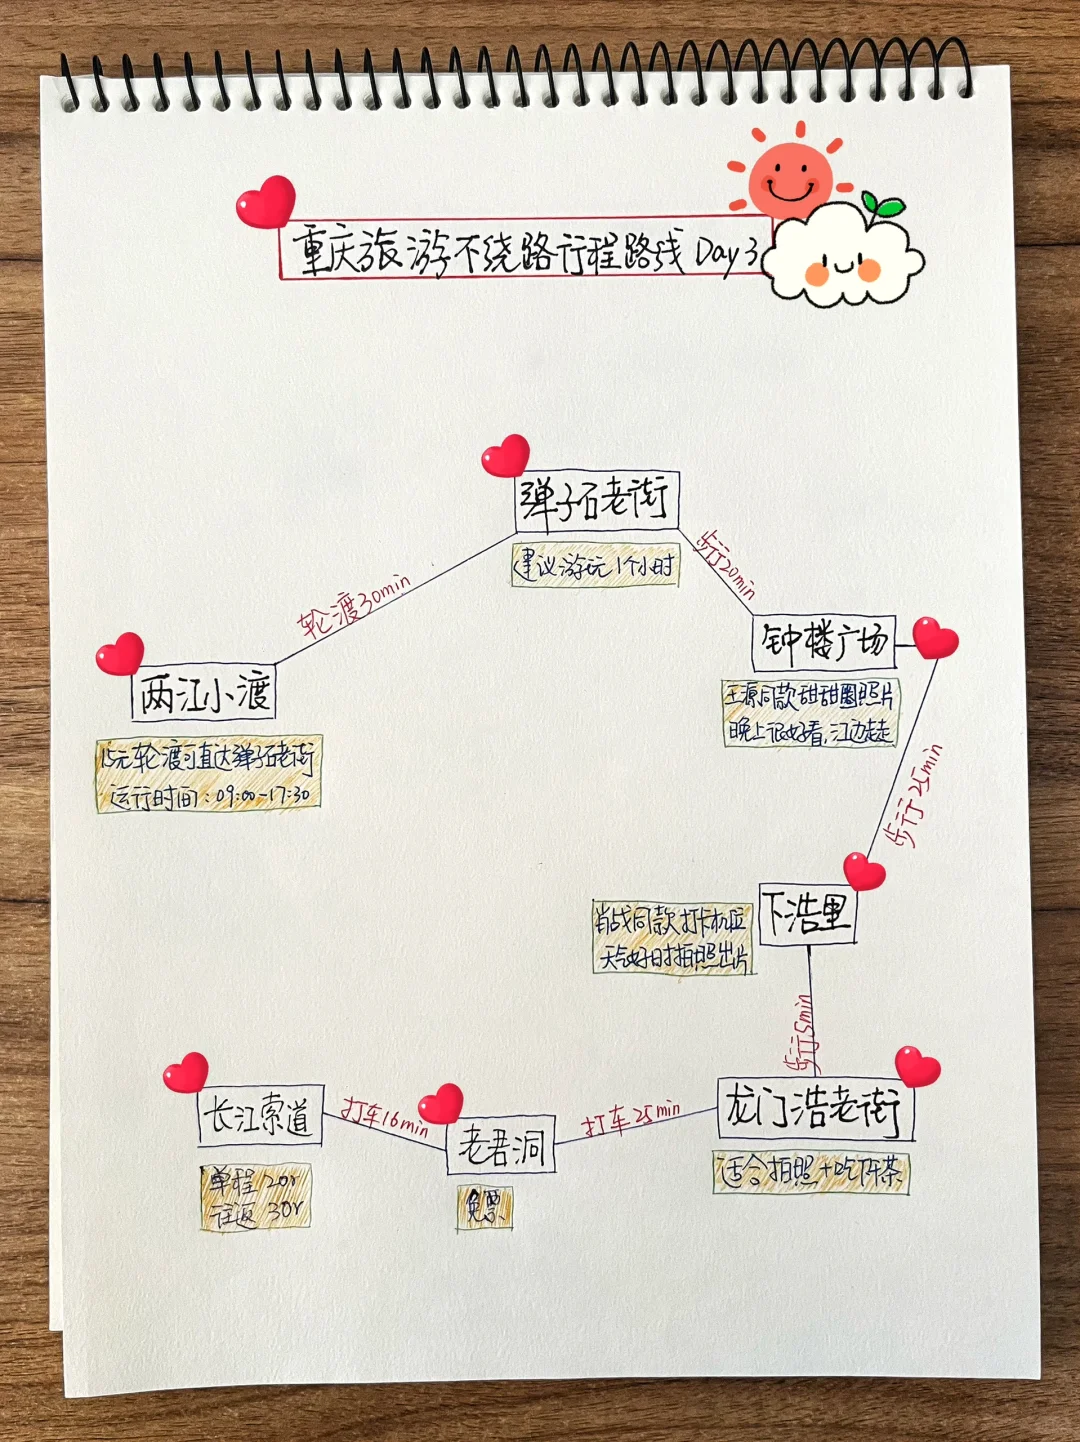 重庆旅游不绕路行程路线 Day 3
弹子石老街
建议游玩1个小时
步行20min
轮渡30min
钟楼广场
王源同款甜甜圈照片
晚上很好看,江边走走
两江小渡
15元轮渡可直达弹子石老街
运行时间:09:00-17:30
步行25min
下浩里
肖战同款打卡机位
天气好时拍照出片
步行5min
龙门浩老街
适合拍照+吃下午茶
打车25min
老君洞
免票
打车16min
长江索道
单程 20r
往返 30r